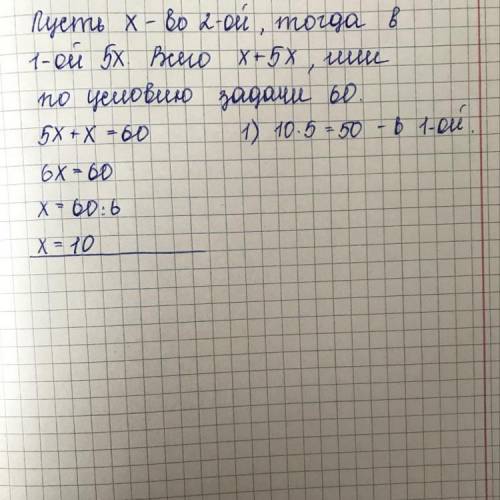 Пусть x - во 2-ой, тогда в
1-ой 5x. Всего x+5x, или
по условию задачи 60.
5x+x=60 1) 10·5=50 - в 1-ой.
6x=60
x=60:6
x=10